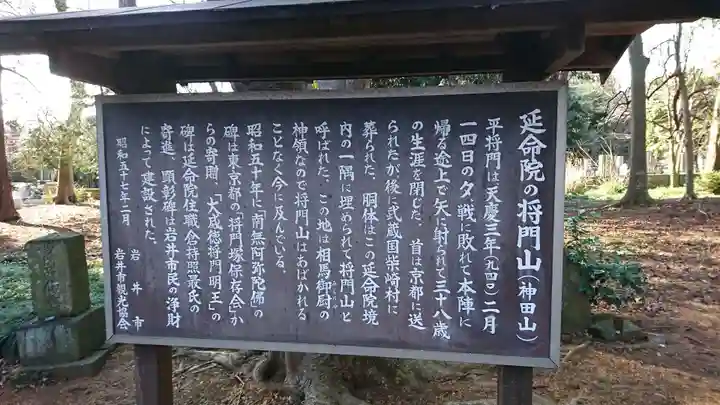 延命院の将門山（神田山）
平将門は天慶三年（九四〇）二月
一四日の夕戦に敗れて本陣に
帰る途上で矢に射られて三十八歳
の生涯を閉じた。首は京都に送
られたが後に武蔵国柴崎村に
葬られた。胴体はこの延命院境
内の一隅に埋められて将門山と
呼ばれた。この地は相馬御厨の
神領なので将門山はあばかれる
ことなく今に及んでいる。
昭和五十年に「南無阿弥陀佛」の
碑は東京都の「将門塚保存会」か
らの寄贈、「大威徳将門明王」の
碑は延命院住職倉持照最氏の
寄進、顕彰碑は岩井市民の浄財
によって建設された。
昭和五十七年二月
岩井市
岩井市観光協会